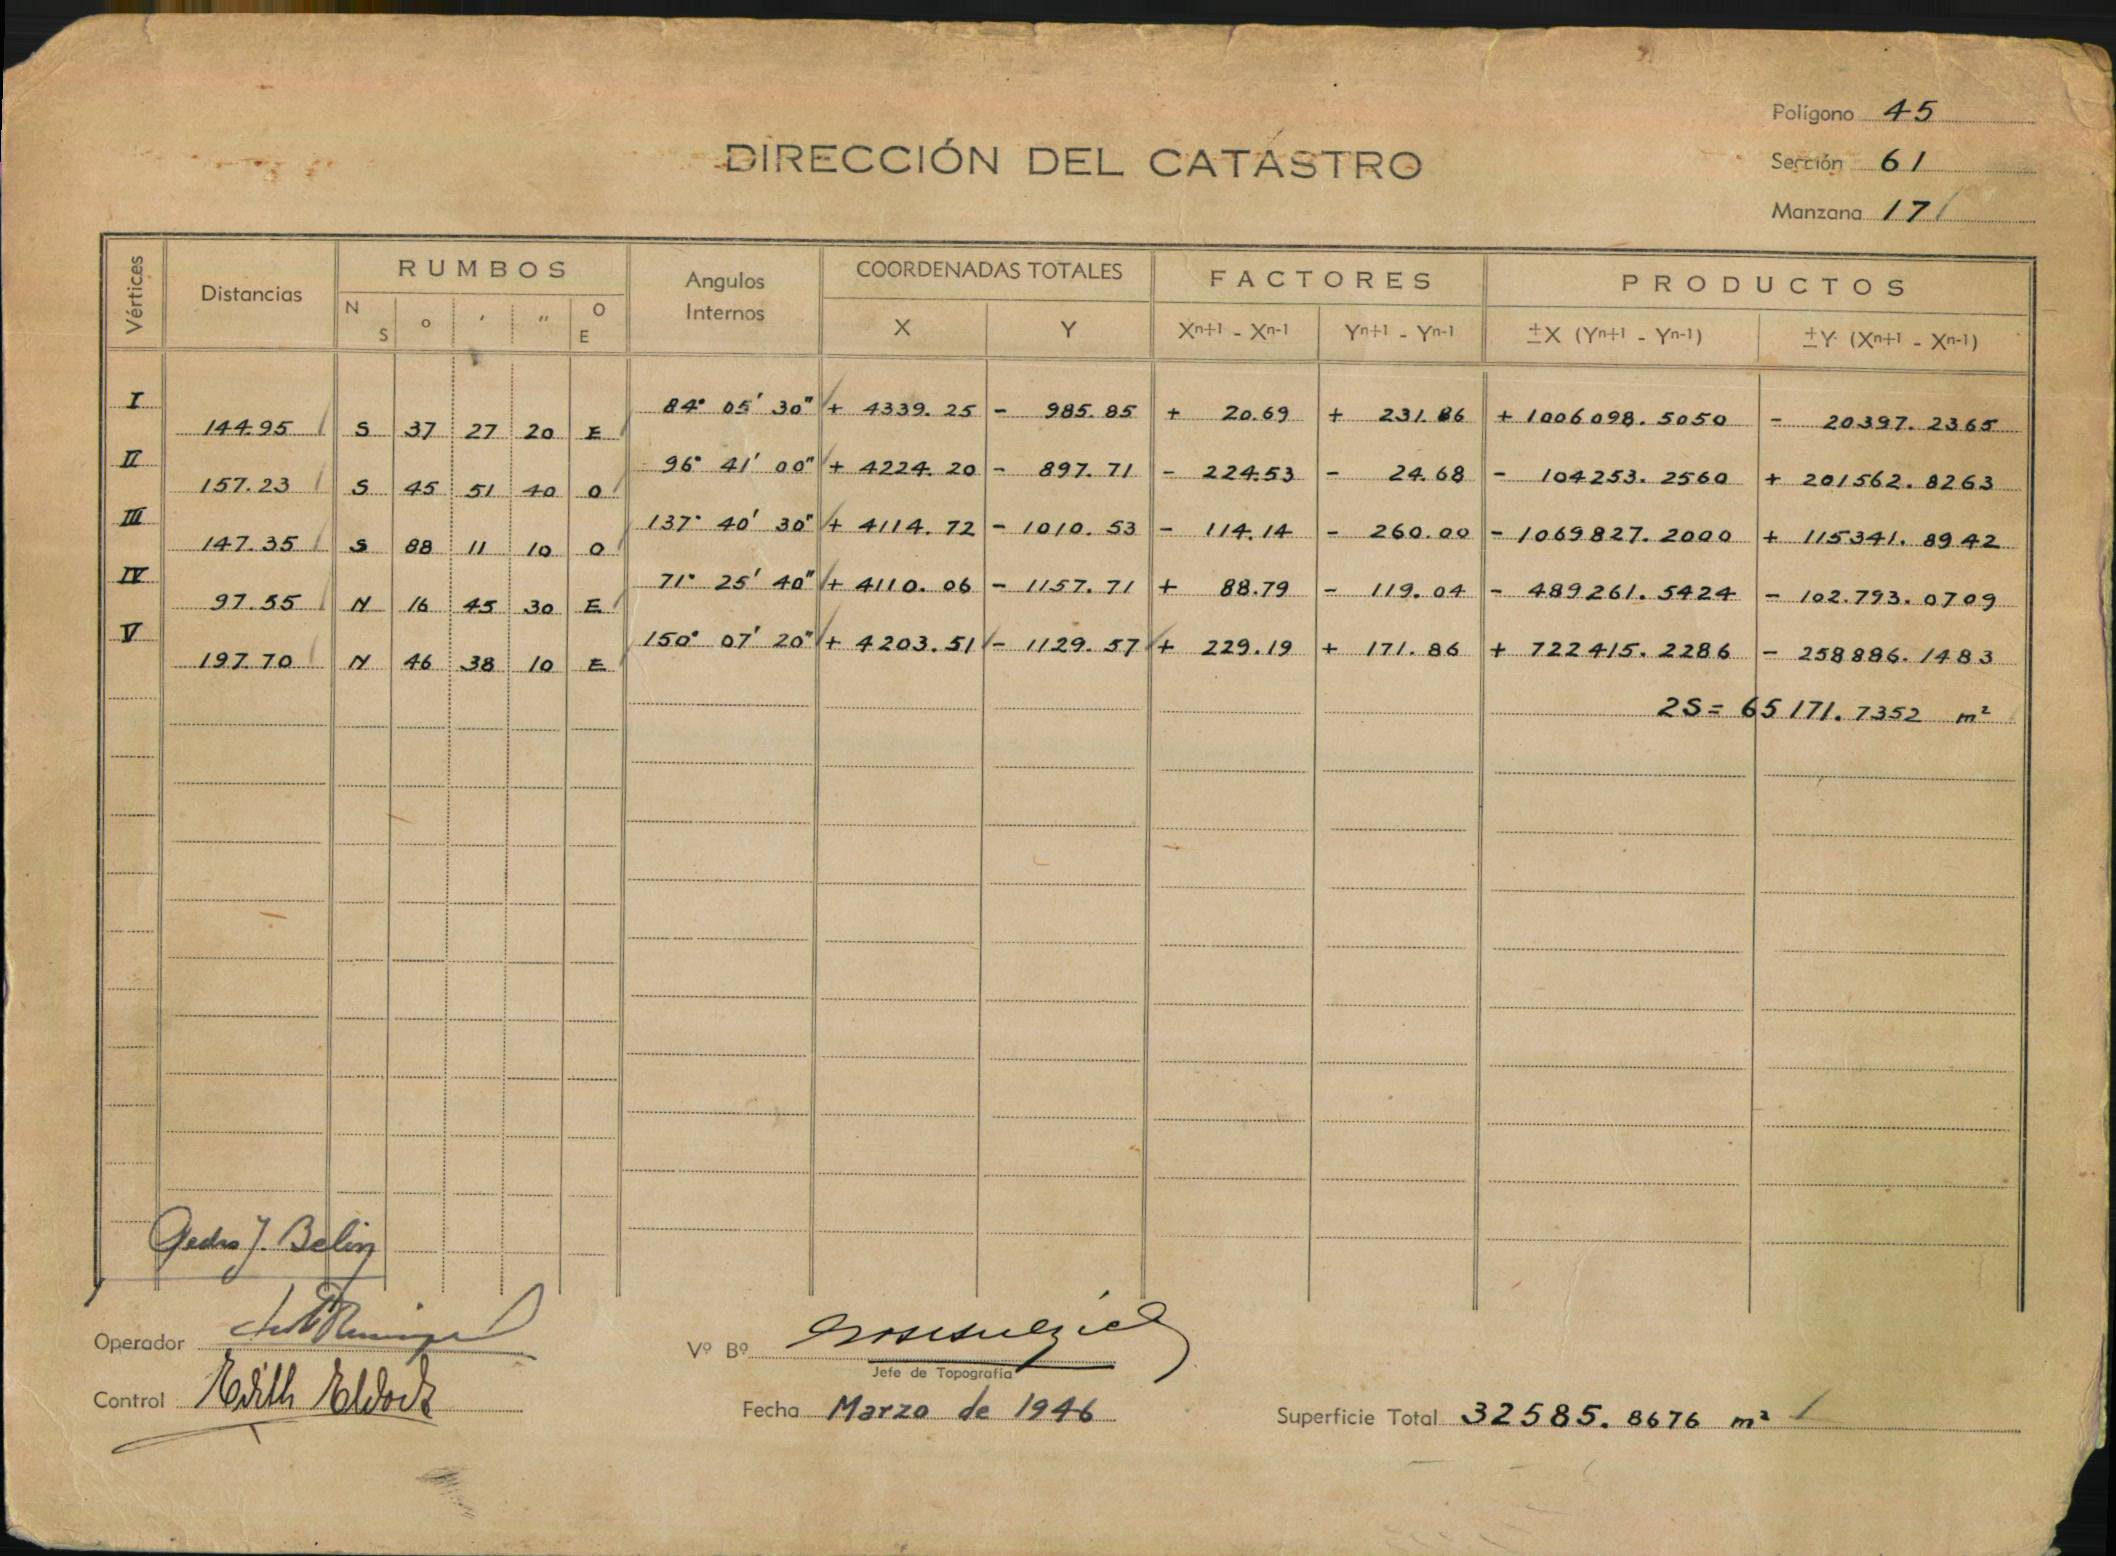 Polígono 45
DIRECCIÓN DEL CATASTRO
Sección 61
Manzana 17
Vértices Distancias RUMBOS Angulos Internos COORDENADAS TOTALES FACTORES PRODUCTOS
N S ° ′ ″ O E X Y Xn+1 - Xn-1 Yn+1 - Yn-1 ±X (Yn+1 - Yn-1) ±Y (Xn+1 - Xn-1)
I 84° 05' 30" + 4339.25 - 985.85 + 20.69 + 231.86 + 1006098.5050 - 20397.2365
144.95 S 37 27 20 E
II 96° 41' 00" + 4224.20 - 897.71 - 224.53 - 24.68 - 104253.2560 + 201562.8263
157.23 S 45 51 40 O
III 137° 40' 30" + 4114.72 - 1010.53 - 114.14 - 260.00 - 1069827.2000 + 115341.8942
147.35 S 88 11 10 O
IV 71° 25' 40" + 4110.06 - 1157.71 + 88.79 - 119.04 - 489261.5424 - 102.793.0709
97.55 N 16 45 30 E
V 150° 07' 20" + 4203.51 - 1129.57 + 229.19 + 171.86 + 722415.2286 - 258886.1483
197.70 N 46 38 10 E
2S = 65171.7352 m²
Pedro J. Belin
Operador
Vº Bº
Jefe de Topografía
Control Edith
Fecha Marzo de 1946
Superficie Total 32585.8676 m²